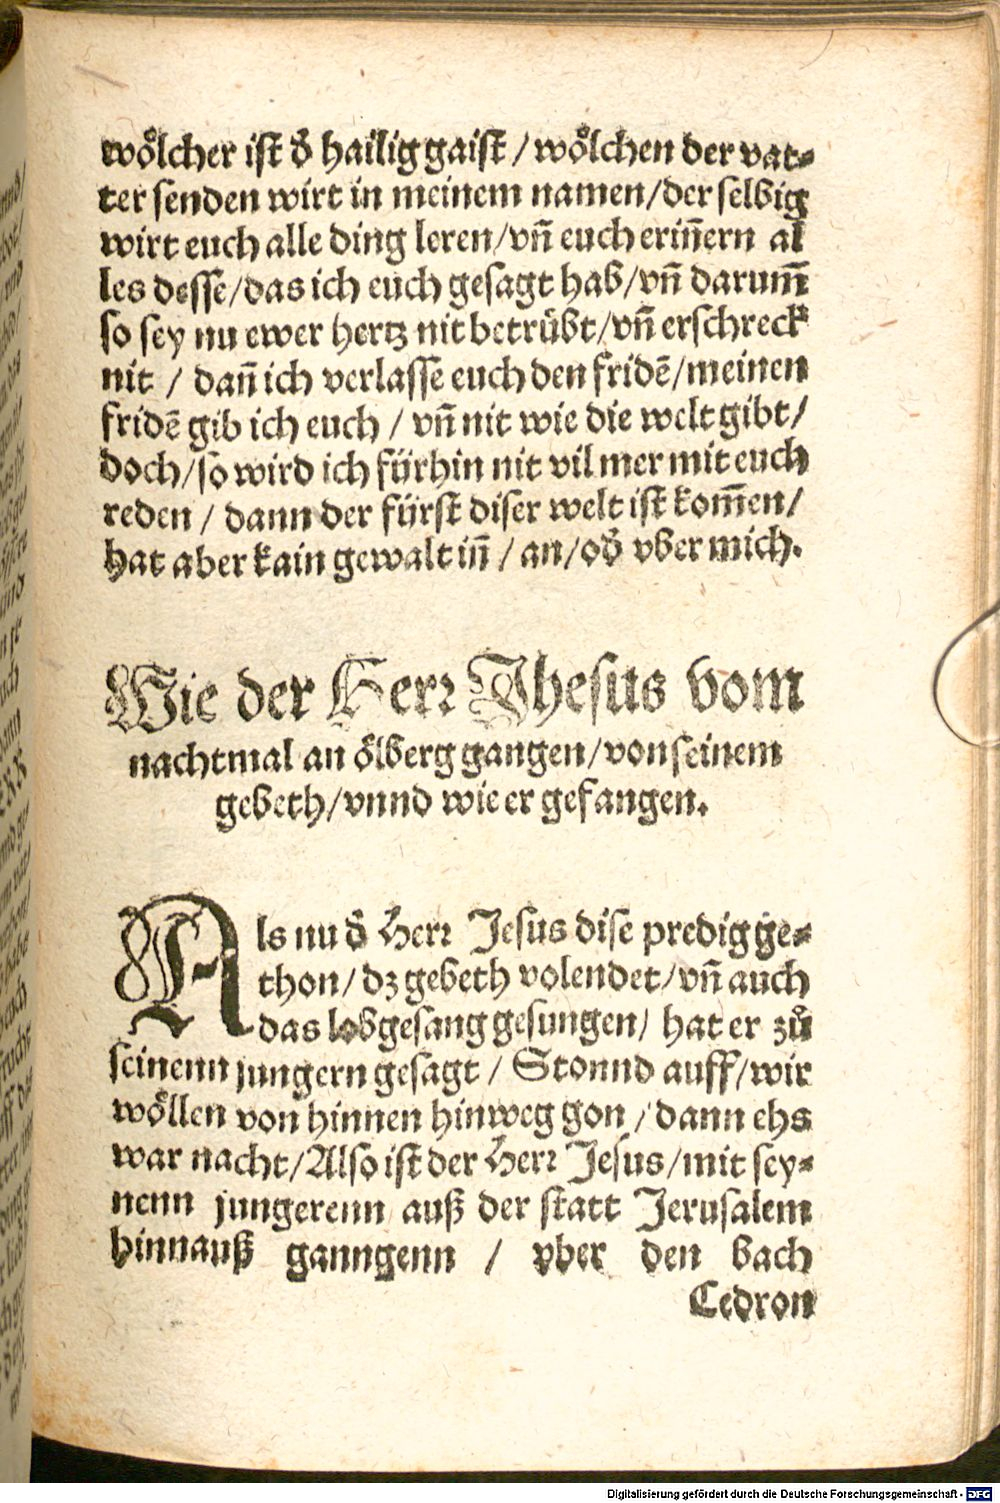 woͤlcher ist dͤ hailig gaist / woͤlchen der vat⸗
ter senden wirt in meinem namen / der selbig
wirt euch alle ding leren / vn̄ euch erin̄ern al
les desse / das ich euch gesagt hab / vn̄ darum̄
so sey nu ewer hertz nit betruͤbt / vn̄ erschreck
nit / dan̄ ich verlasse euch den fridē / meinen
fridē gib ich euch / vn̄ nit wie die welt gibt /
doch / so wird ich fürhin nit vil mer mit euch
reden / dann der fürst diser welt ist kom̄en /
hat aber kain gewalt in̄ / an / odͤ vber mich.
Wie der Herr Jhesus vom
nachtmal an oͤlberg gangen / von seinem
gebeth / vnnd wie er gefangen.
Als nu dͤ Herr Jesus dise predig ge⸗
thon / dz gebeth volendet / vn̄ auch
das lobgesang gesungen / hat er zuͦ
seinenn jungern gesagt / Stonnd auff / wir
woͤllen von hinnen hinweg gon / dann ehs
war nacht / Also ist der Herr Jesus / mit sey⸗
nenn jungerenn auß der statt Jerusalem
hinnauß ganngenn / vber den bach
Cedron
Digitalisierung gefördert durch die Deutsche Forschungsgemeinschaft - DFG